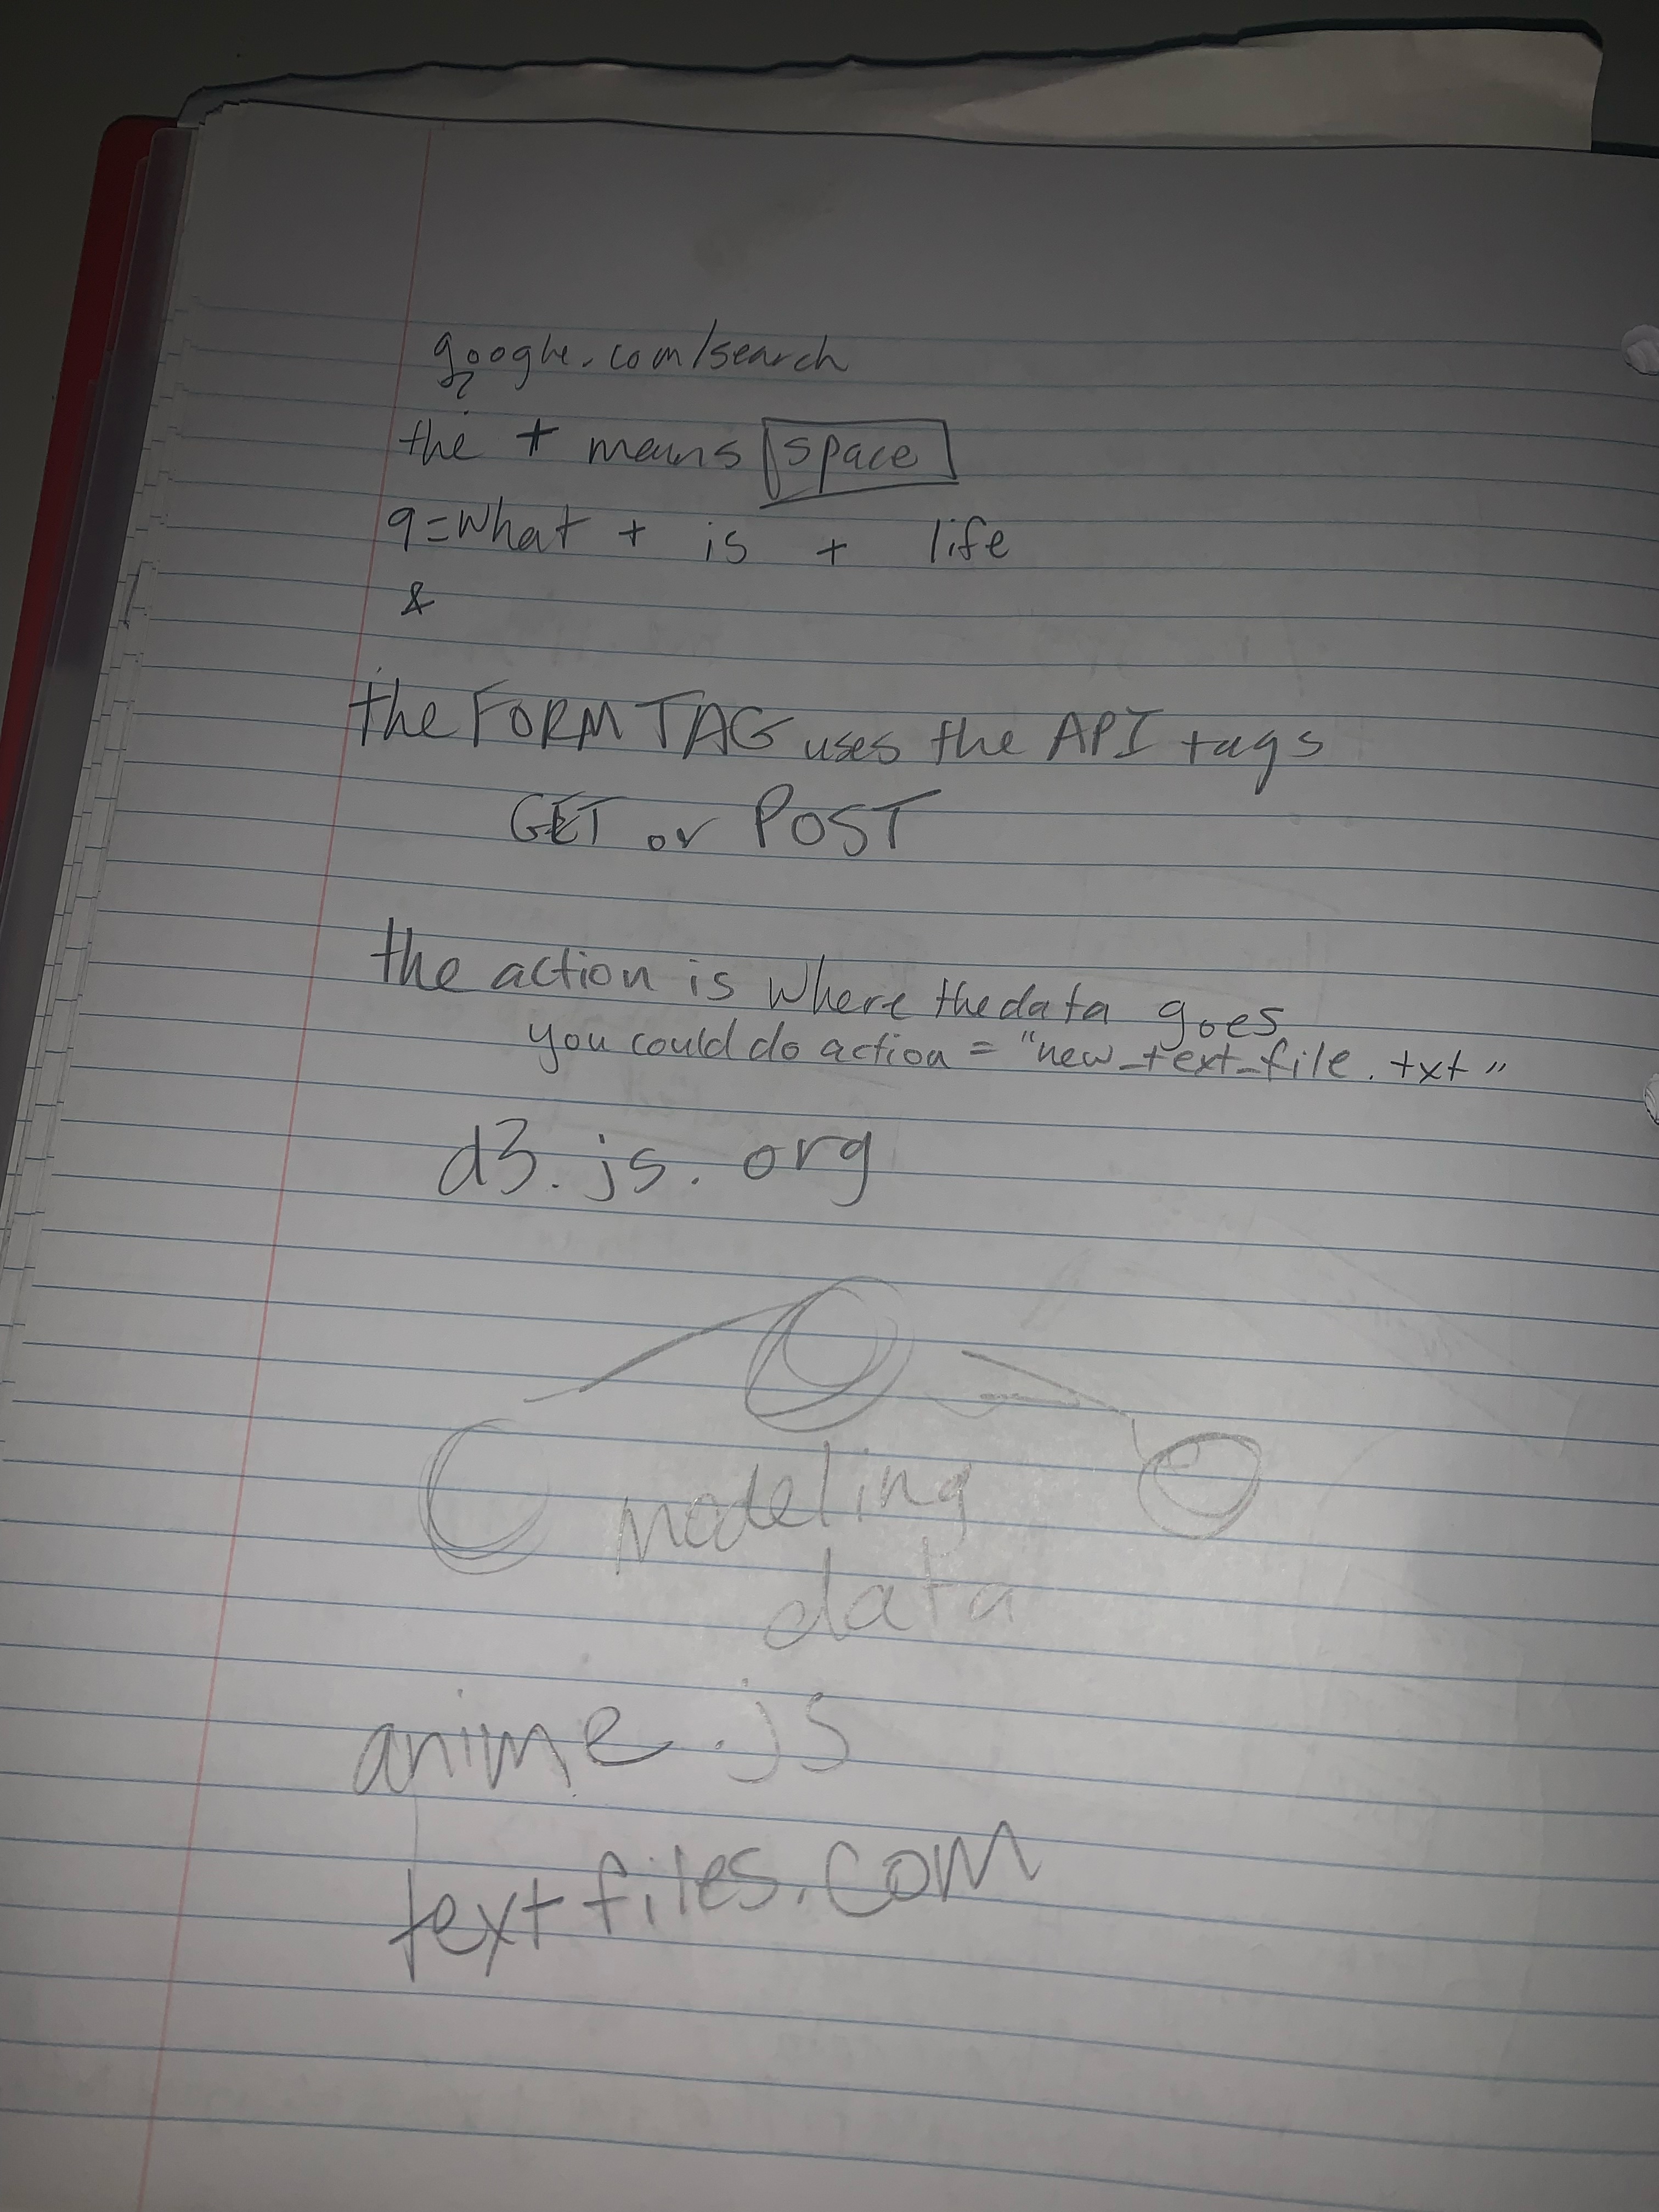 google.com/search
?
the + means space
q=what + is + life
&
the FORM TAG uses the API tags
GET or POST
the action is where the data goes
you could do action = "new_text_file.txt"
d3.js.org
modeling
data
anime.js
textfiles.com